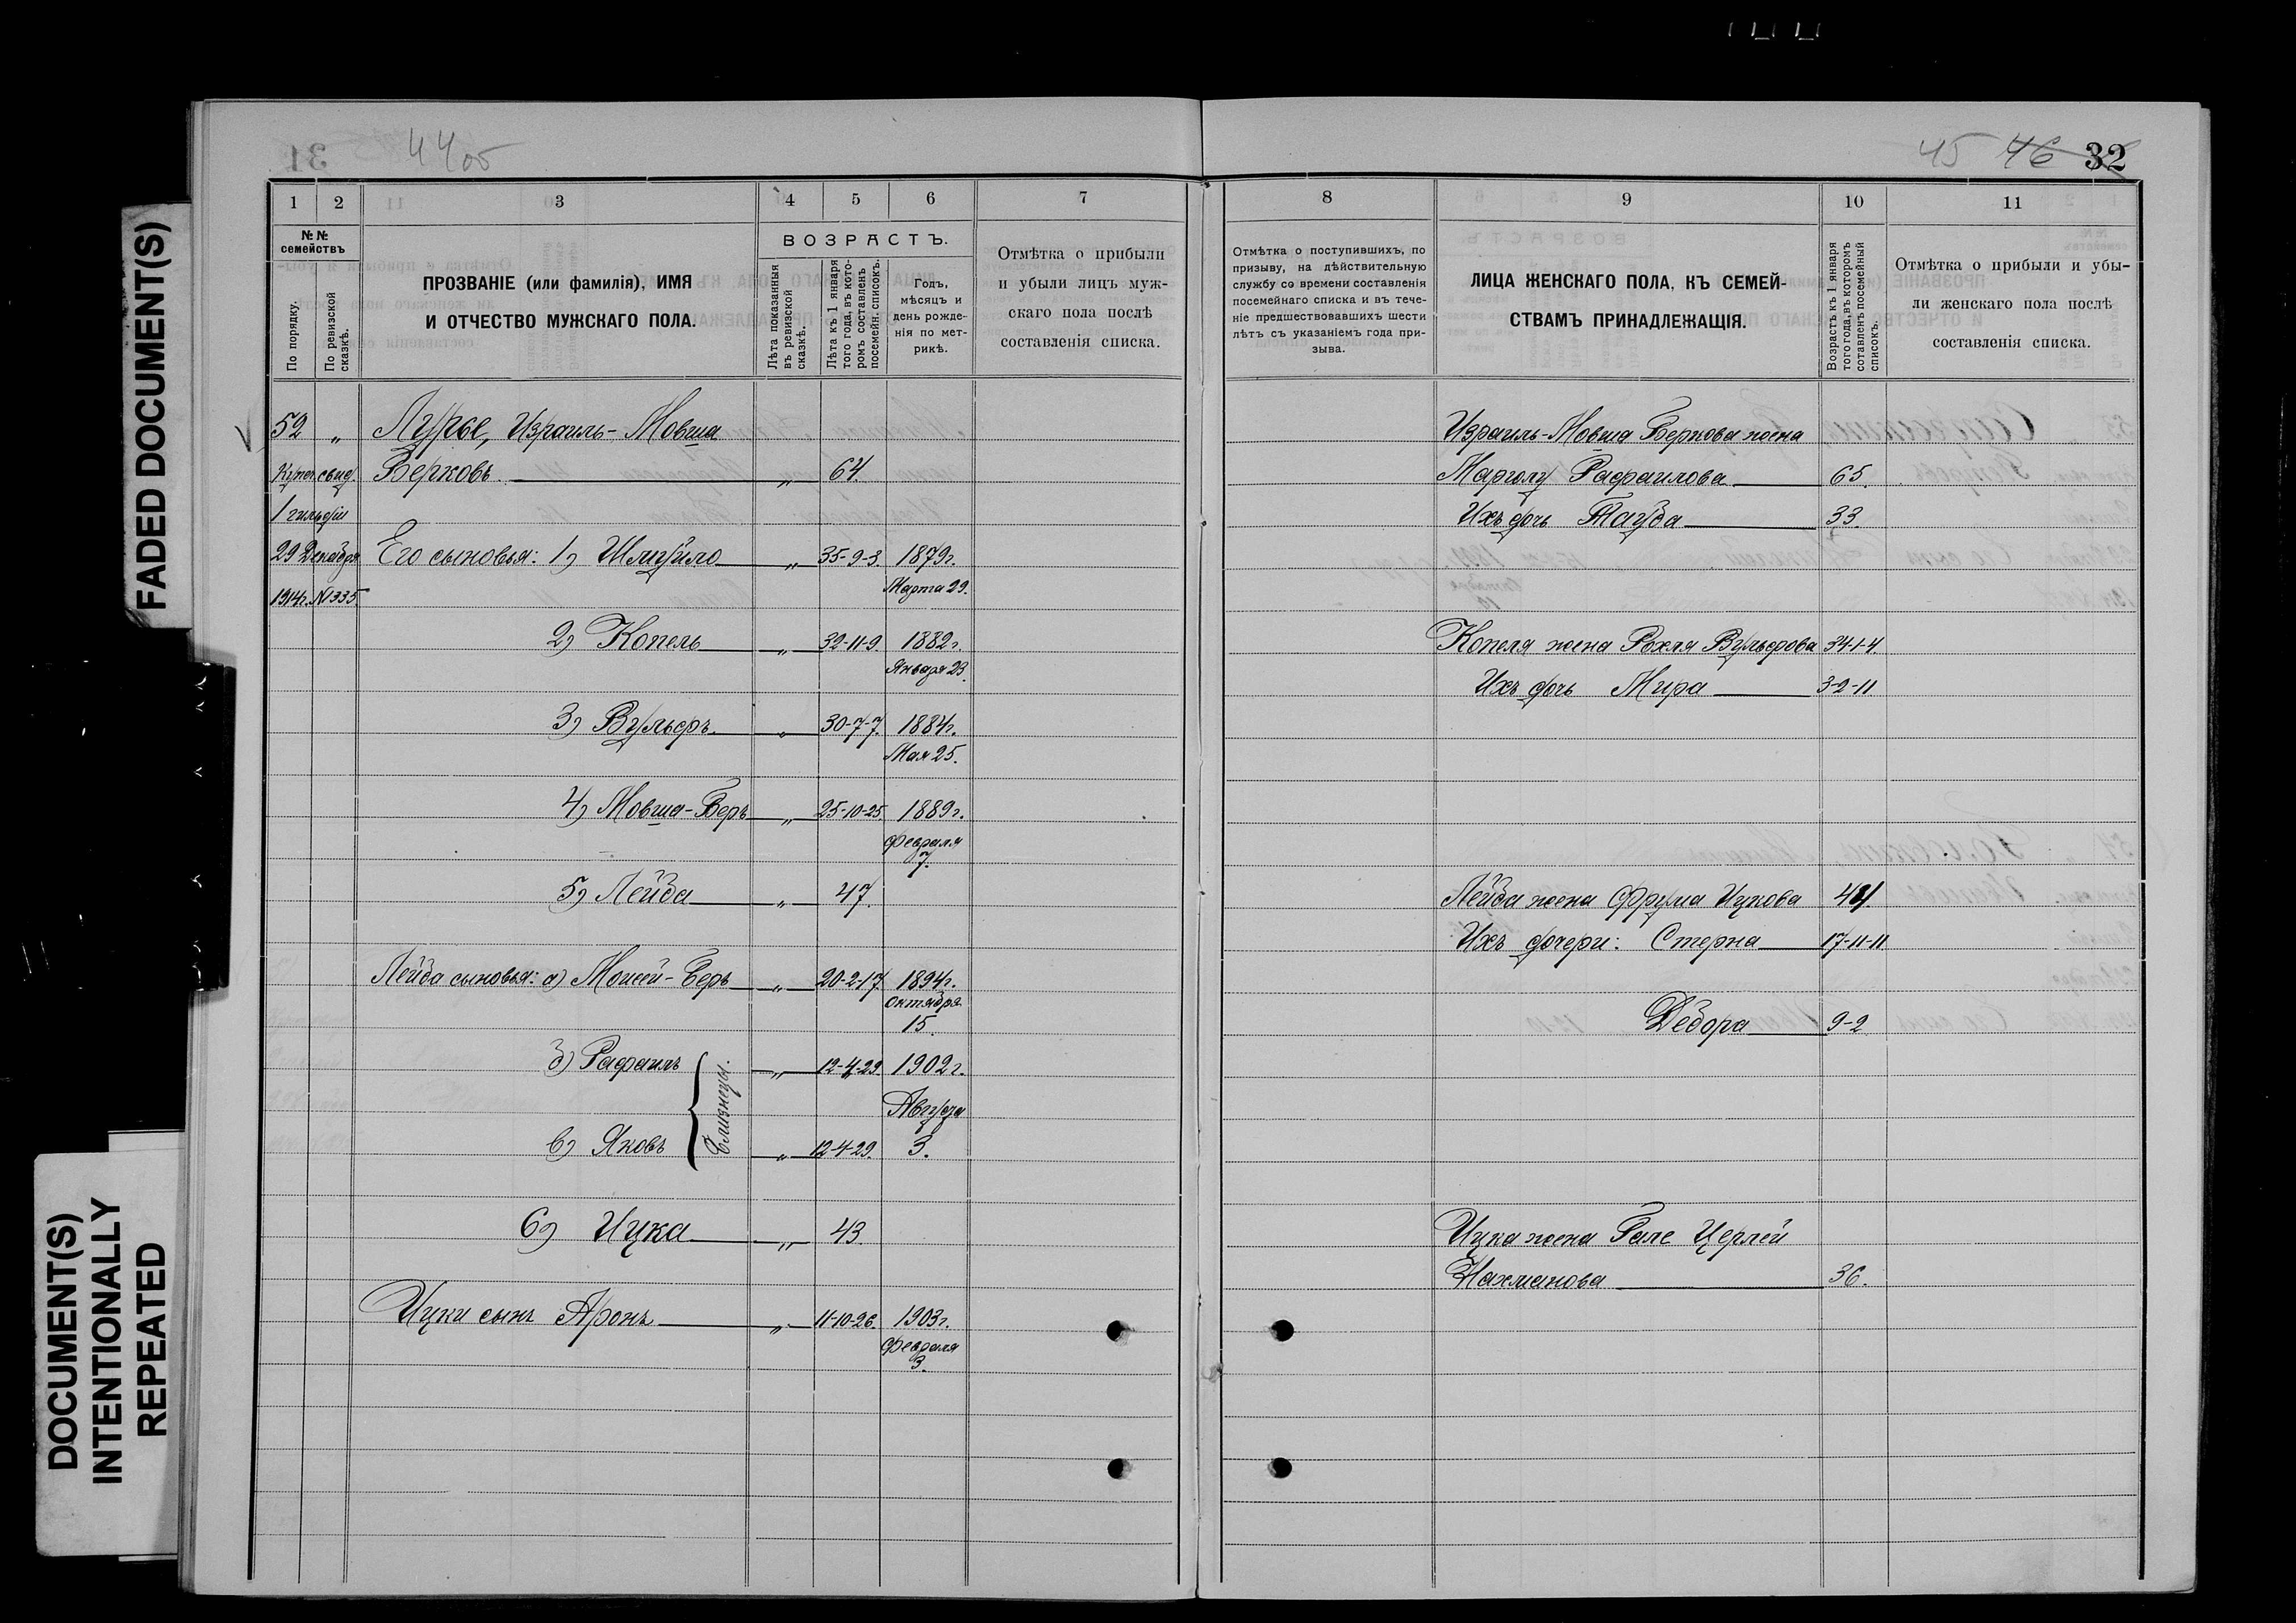 FADED DOCUMENT(S)
DOCUMENT(S)
INTENTIONALLY
REPEATED
31
44об
45 46 32
1 2 3 4 5 6 7
№№
семействъ
По порядку.
По ревизской сказкѣ.
ПРОЗВАНІЕ (или фамилія), ИМЯ
И ОТЧЕСТВО МУЖСКАГО ПОЛА.
ВОЗРАСТЪ.
Лѣта показанныя въ ревизской сказкѣ.
Лѣта къ 1 января того года, въ которомъ составленъ посемейн. списокъ.
Годъ,
мѣсяцъ и
день рожде-
нія по мет-
рикѣ.
Отмѣтка о прибыли
и убыли лицъ муж-
скаго пола послѣ
составленія списка.
52 „ Лурье, Израиль-Мовша
Купеч. свид. Берковъ „ 64.
1 гильдіи
29 Декабря Его сыновья: 1) Шмуйло „ 35-9-3. 1879г.
1914г. №335. Марта 29.
2) Копель „ 32-11-9. 1882г.
Января 23.
3) Вульфъ „ 30-7-7. 1884г.
Мая 25.
4) Мовша-Беръ „ 25-10-25. 1889г.
Февраля
7.
5) Лейба „ 47.
Лейба сыновья: а) Моисей-Беръ „ 20-2-17. 1894г.
Октября
15.
б) Рафаилъ „ 12-4-29. 1902г.
Близнецы.
Августа
в) Яковъ „ 12-4-29. 3.
6) Ицка „ 43.
Ицки сынъ Аронъ „ 11-10-26. 1903г.
Февраля
3.
8 9 10 11
Отмѣтка о поступившихъ, по
призыву, на дѣйствительную
службу со времени составленія
посемейнаго списка и въ тече-
ніе предшествовавшихъ шести
лѣтъ съ указаніемъ года при-
зыва.
ЛИЦА ЖЕНСКАГО ПОЛА, КЪ СЕМЕЙ-
СТВАМЪ ПРИНАДЛЕЖАЩІЯ.
Возрастъ къ 1 января
того года, въ которомъ
сотавленъ посемейный
списокъ.
Отмѣтка о прибыли и убы-
ли женскаго пола послѣ
составленія списка.
Израиль-Мовша Беркова жена
Марголу Рафаилова 65.
Ихъ дочь Тауба 33.
Копеля жена Рохля Вульфова 34-1-4.
Ихъ дочь Мира 3-2-11
Лейба жена Фрума Ицкова 44.
Ихъ дочери: Стерна 17-11-11
Дебора 9-2
Ицка жена Гале Церлей
Нахманова 36.